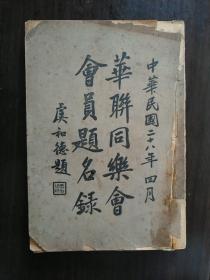 中華民國二十八年四月
華聯同樂會
會員題名錄
虞和德題